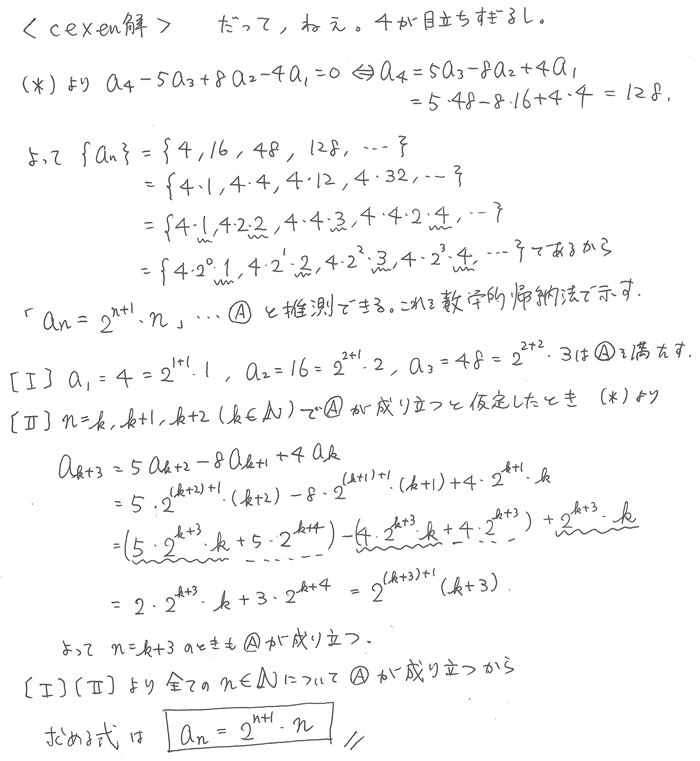 ＜cexen解＞ だって，ねぇ。4が目立ちすぎるし。
(*)より a₄-5a₃+8a₂-4a₁=0 ⇔ a₄=5a₃-8a₂+4a₁
=5・48-8・16+4・4=128.
よって {aₙ}={4, 16, 48, 128, …}
={4・1, 4・4, 4・12, 4・32, …}
={4・1, 4・2・2, 4・4・3, 4・4・2・4, …}
={4・2⁰・1, 4・2¹・2, 4・2²・3, 4・2³・4, …}であるから
「aₙ=2ⁿ⁺¹・n」…Ⓐ と推測できる。これを数学的帰納法で示す.
[Ⅰ] a₁=4=2¹⁺¹・1, a₂=16=2²⁺¹・2, a₃=48=2²⁺²・3はⒶを満たす.
[Ⅱ] n=k, k+1, k+2 (k∈ℕ)でⒶが成り立つと仮定したとき (*)より
aₖ₊₃=5aₖ₊₂-8aₖ₊₁+4aₖ
=5・2^{(k+2)+1}・(k+2)-8・2^{(k+1)+1}・(k+1)+4・2^{k+1}・k
=(5・2^{k+3}・k+5・2^{k+4})-(4・2^{k+3}・k+4・2^{k+3})+2^{k+3}・k
=2・2^{k+3}・k+3・2^{k+4}=2^{(k+3)+1}(k+3).
よって n=k+3のときもⒶが成り立つ.
[Ⅰ][Ⅱ]より 全てのn∈ℕについてⒶが成り立つから
求める式は aₙ=2ⁿ⁺¹・n //